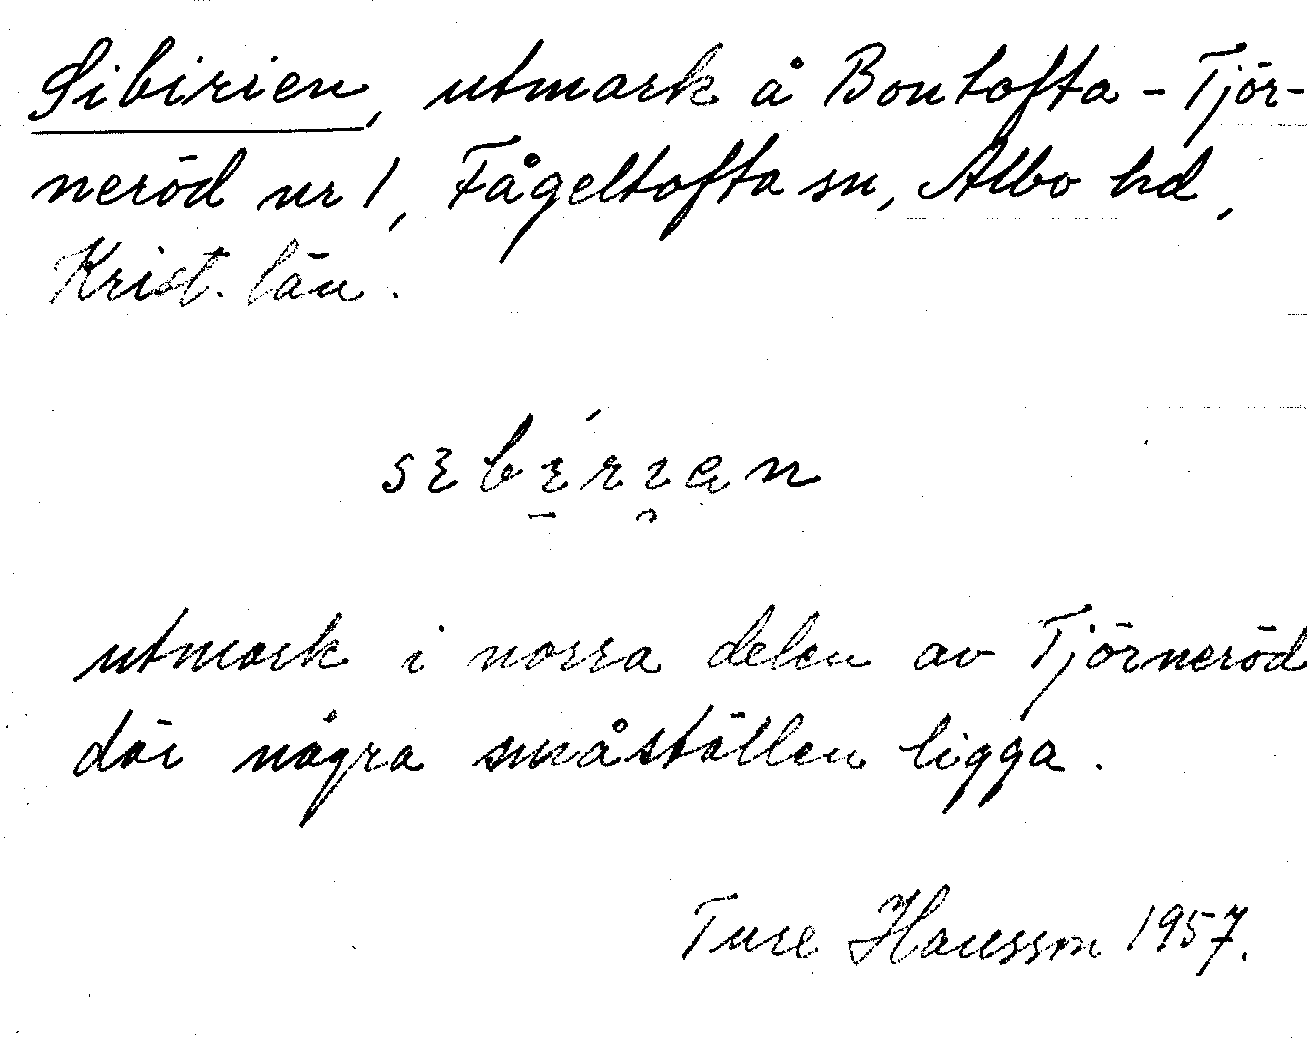 Sibirien, utmark å Bontofta - Tjör-
neröd nr 1, Fågeltofta sn, Albo hd,
Krist. län.
sɛbɪ́rɪan
utmark i norra delen av Tjörneröd
där några småställen ligga.
Ture Hansson 1957.